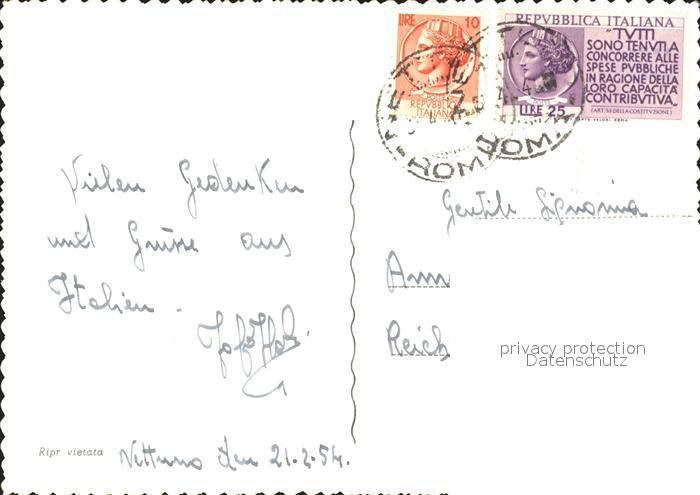 LIRE 10
POSTE
REPVBBLICA
ITALIANA
REPVBBLICA ITALIANA
"TVTTI
SONO TENVTI A
CONCORRERE ALLE
SPESE PVBBLICHE
IN RAGIONE DELLA
LORO CAPACITÀ
CONTRIBVTIVA"
(ART. 53 DELLA COSTITVZIONE)
LIRE 25
ROMA
ROMA
Vielen Gedenken
und Grüsse aus
Italien.
Gentile Signorina
Ann
Reich
privacy protection
Datenschutz
Ripr vietata
Nettuno den 21.2.54.